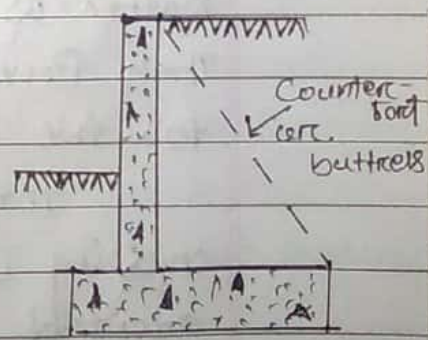 Counter-
fort
or
buttress